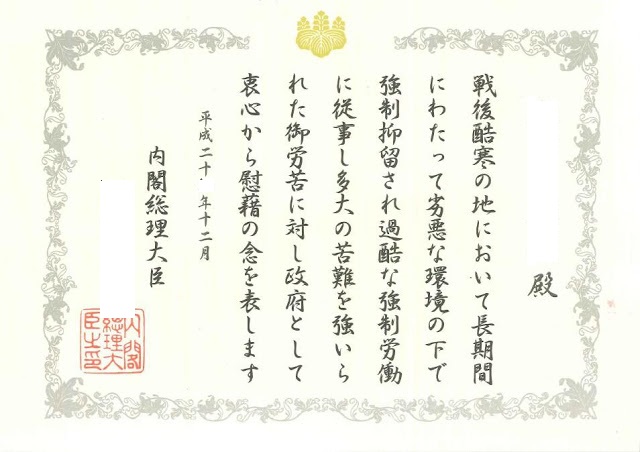 殿
戦後酷寒の地において長期間
にわたって劣悪な環境の下で
強制抑留され過酷な強制労働
に従事し多大の苦難を強いら
れた御労苦に対し政府として
衷心から慰藉の念を表します
平成二十 年十二月
内閣総理大臣
内閣
総理大
臣之印